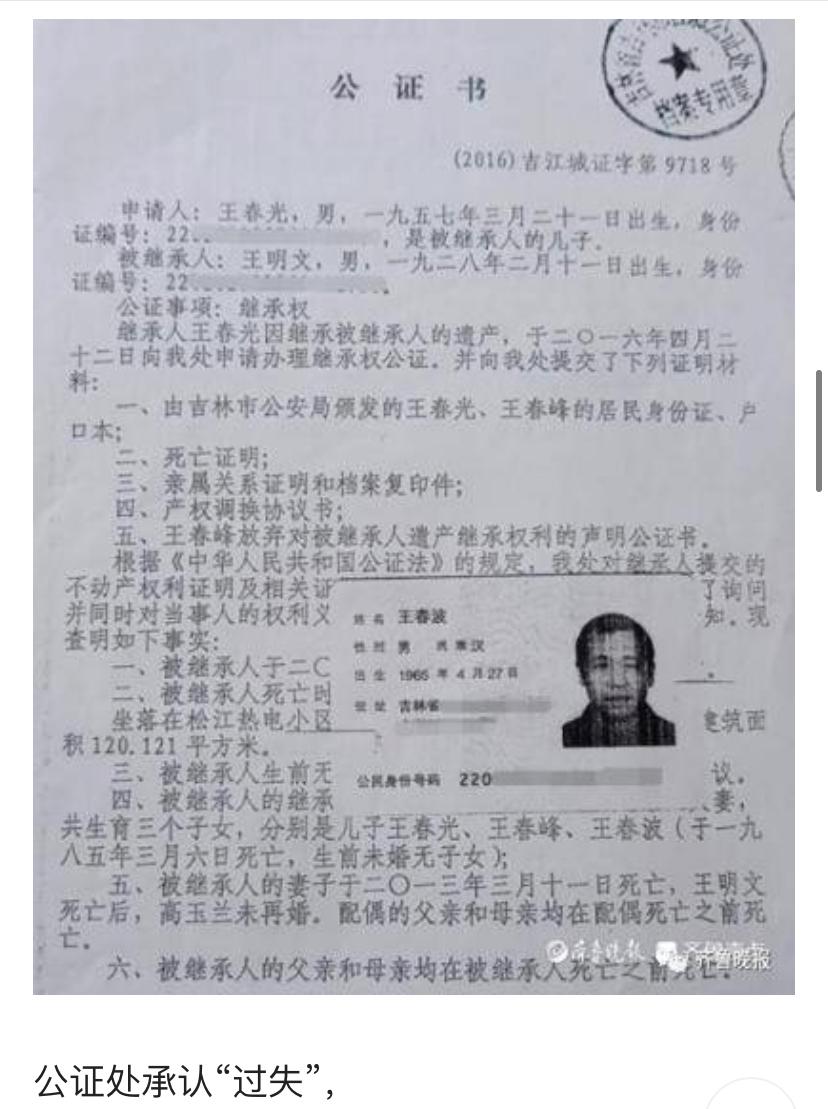 档案专用章
公 证 书
(2016)吉江城证字第 9718 号
申请人：王春光，男，一九五七年三月二十一日出生，身份
证编号：22..，是被继承人的儿子。
被继承人：王明文，男，一九二八年二月十一日出生，身份
证编号：22
公证事项：继承权
继承人王春光因继承被继承人的遗产，于二〇一六年四月二
十二日向我处申请办理继承权公证。并向我处提交了下列证明材
料：
一、由吉林市公安局颁发的王春光、王春峰的居民身份证、户
口本；
二、死亡证明；
三、亲属关系证明和档案复印件；
四、产权调换协议书；
五、王春峰放弃对被继承人遗产继承权利的声明公证书。
根据《中华人民共和国公证法》的规定，我处对继承人提交的
不动产权利证明及相关证 了询问
并同时对当事人的权利义 知。现
查明如下事实：
一、被继承人于二〇
二、被继承人死亡时
坐落在松江热电小区 建筑面
积 120.121 平方米。
三、被继承人生前无 议。
四、被继承人的继承 妻，
共生育三个子女，分别是儿子王春光、王春峰、王春波（于一九
八五年三月六日死亡，生前未婚无子女）；
五、被继承人的妻子于二〇一三年三月十一日死亡，王明文
死亡后，高玉兰未再婚。配偶的父亲和母亲均在配偶死亡之前死
亡。
六、被继承人的父亲和母亲均在被继承人死亡之前死亡。
姓名 王春波
性别 男 民族 汉
出生 1965 年 4 月 27 日
住址 吉林省
公民身份号码 220
齐鲁晚报
齐鲁晚报
公证处承认“过失”，